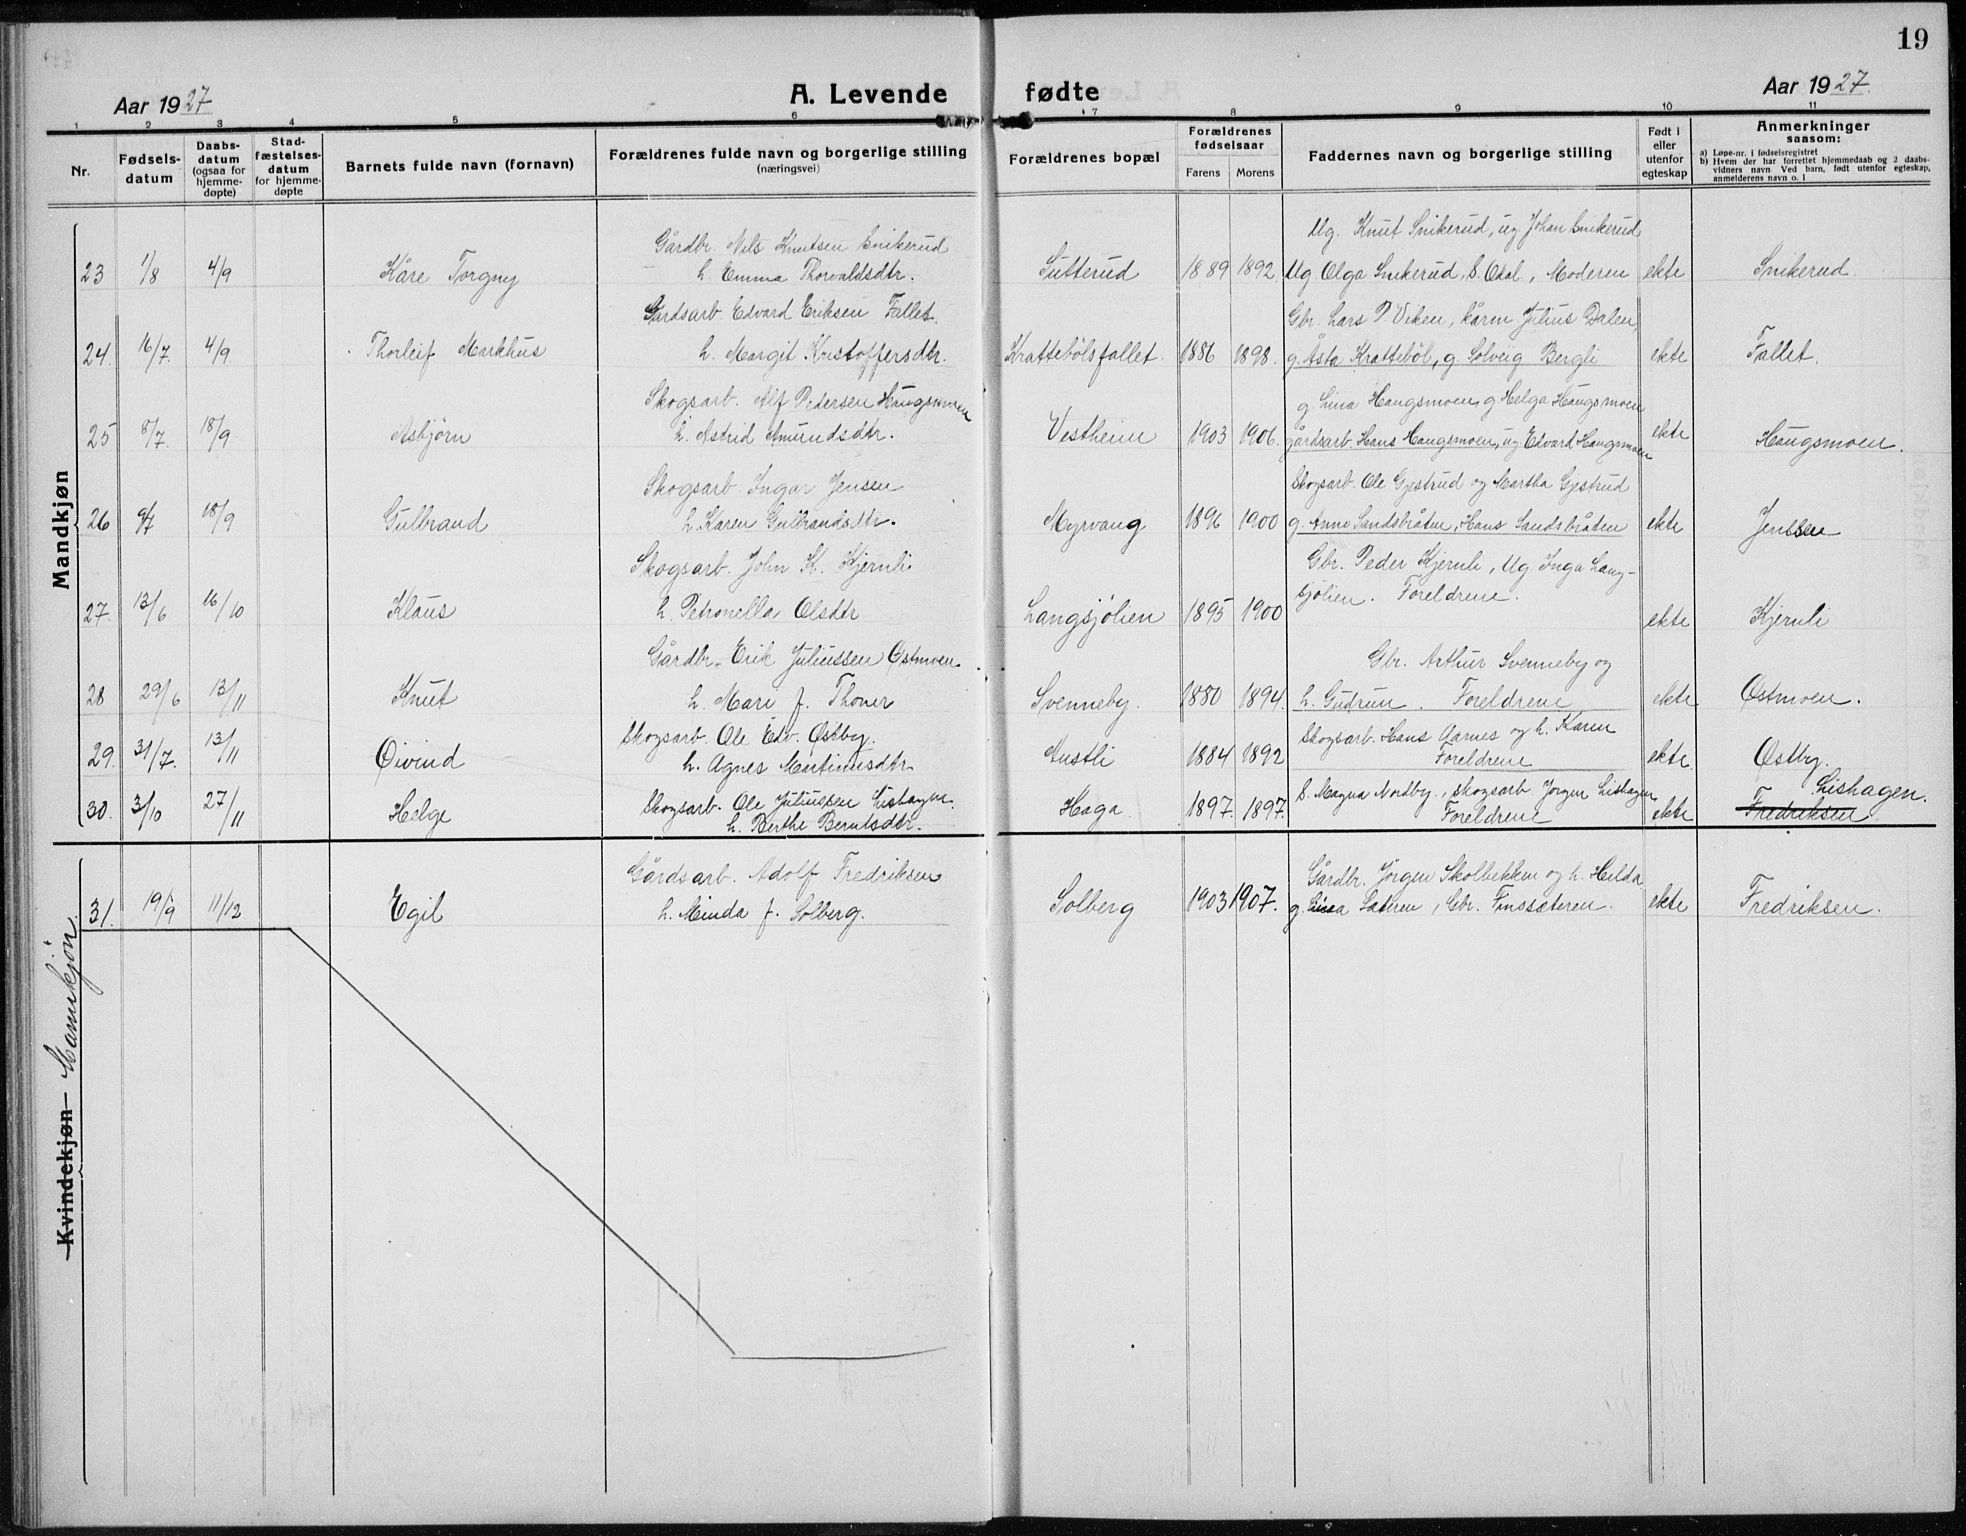 19
Aar 1927 A. Levende fødte Aar 1927.
1 2 3 4 5 6 7 8 9 10 11
Nr.
Fødsels-
datum
Daabs-
datum
(ogsaa for
hjemme-
døpte)
Stad-
fæstelses-
datum
for hjemme-
døpte
Barnets fulde navn (fornavn)
Forældrenes fulde navn og borgerlige stilling
(næringsvei)
Forældrenes bopæl
Forældrenes
fødselsaar
Farens Morens
Faddernes navn og borgerlige stilling
Født i
eller
utenfor
egteskap
Anmerkninger
saasom:
a) Løpe-nr. i fødselsregistret
b) Hvem der har forrettet hjemmedaab og 2 daabs-
vidners navn Ved barn, født utenfor egteskap,
anmelderens navn o. l
Mandkjøn
Gårdbr. Nels Knutsen Snikerud Ug. Knut Snikerud, ug Johan Snikerud
23 1/8 4/9 Kåre Torgny h. Emma Thorvaldsdtr. Sutterud 1889 1892. Ug Olga Snikerud, S. Odal, Moderen ekte Snikerud.
Gårdsarb. Edvard Eriksen Fallet. Gbr. Lars P. Viken, Julius Dalen,
24. 16/7. 4/9 Thorleif Markhus h. Margit Kristoffersdtr. Krattebölsfallet. 1886 1898. g. Åsta Kratteböl, g. Solveig Bergli ekte Fallet.
Skogsarb. Alf Pedersen Haugsmoen g. Lina Haugsmoen, g Helga Haugsmoen
25 8/7. 18/9 Asbjörn h. Astrid Amundsdtr. Vestheim 1903 1906. gårdsarb. Hans Haugsmoen, ug Edvard Haugsmoen ekte Haugsmoen.
Skogsarb. Ingar Jensen Skogsarb. Ole Gjestrud og Martha Gjestrud
26 9/7 18/9 Gulbrand h. Karen Gulbrandsdtr. Myrvang 1896 1900 g. Anne Sandsbråten, Hans Sandsbråten ekte Jenssen
Skogsarb. John K. Kjernli Gbr. Peder Kjernli, Ug. Inga Lang-
sjölien. Foreldrene.
27. 13/6 16/10 Klaus h. Petronella Olsdtr Langsjölien 1895 1900 ekte Kjernli
Gårdbr. Erik Juliussen Østmoen. Gbr. Arthur Svenneby og
28 29/6 13/11 Knut h. Mari f. Thoner Svenneby. 1880 1894. h. Gudrun. Foreldrene ekte Østmoen.
Skogsarb. Ole Edv. Østby. Skogsarb. Hans Aarnes og h. Karen
29. 31/7. 13/11 Øivind h. Agnes Martinusdtr Austli 1884 1892 Foreldrene ekte. Østby.
Skogsarb. Ole Juliussen Lishagen. S. Magna Nordby, skogsarb. Jörgen Lishagen Lishagen.
30. 3/10 27/11 Helge h. Berthe Berntsdtr. Haga 1897. 1897. Foreldrene ekte Fredriksen
Kvindekjøn Mannkjön.
Gårdsarb. Adolf Fredriksen Gårdbr. Jörgen Skolbekken og h. Hilda
31. 19/9 11/12 Egil h. Minda f. Solberg. Solberg 1903 1907. g. Sæteren, Chr. Finssæteren. ekte Fredriksen.